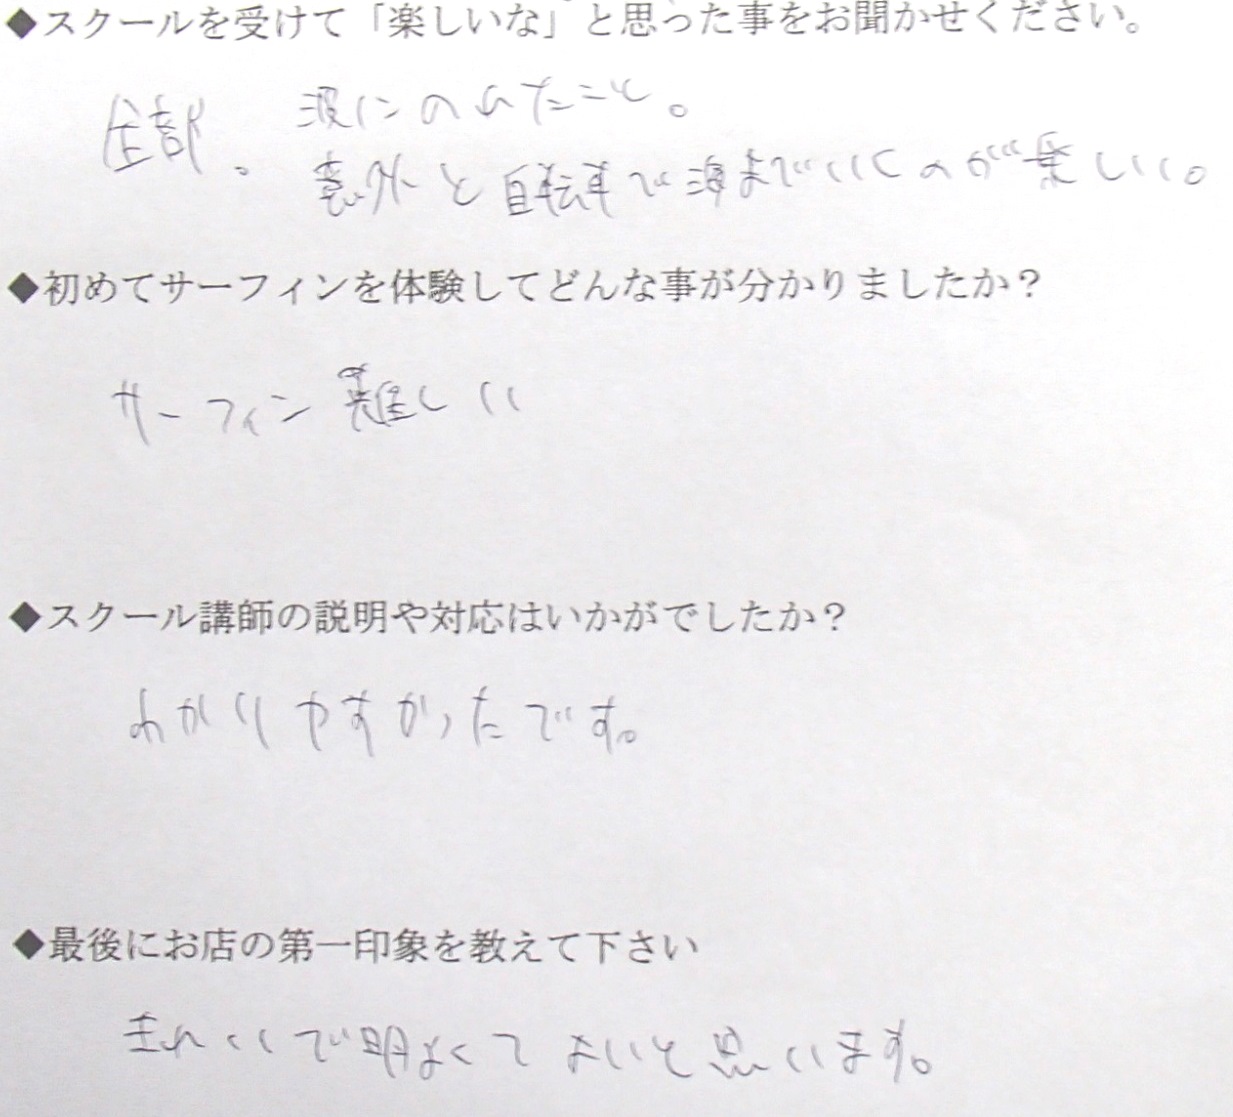 ◆スクールを受けて「楽しいな」と思った事をお聞かせください。
全部。 波にのれたこと。
意外と自転車で海までいくのが楽しい。
◆初めてサーフィンを体験してどんな事が分かりましたか？
サーフィン難しい
◆スクール講師の説明や対応はいかがでしたか？
わかりやすかったです。
◆最後にお店の第一印象を教えて下さい
きれいで明よくてよいと思います。